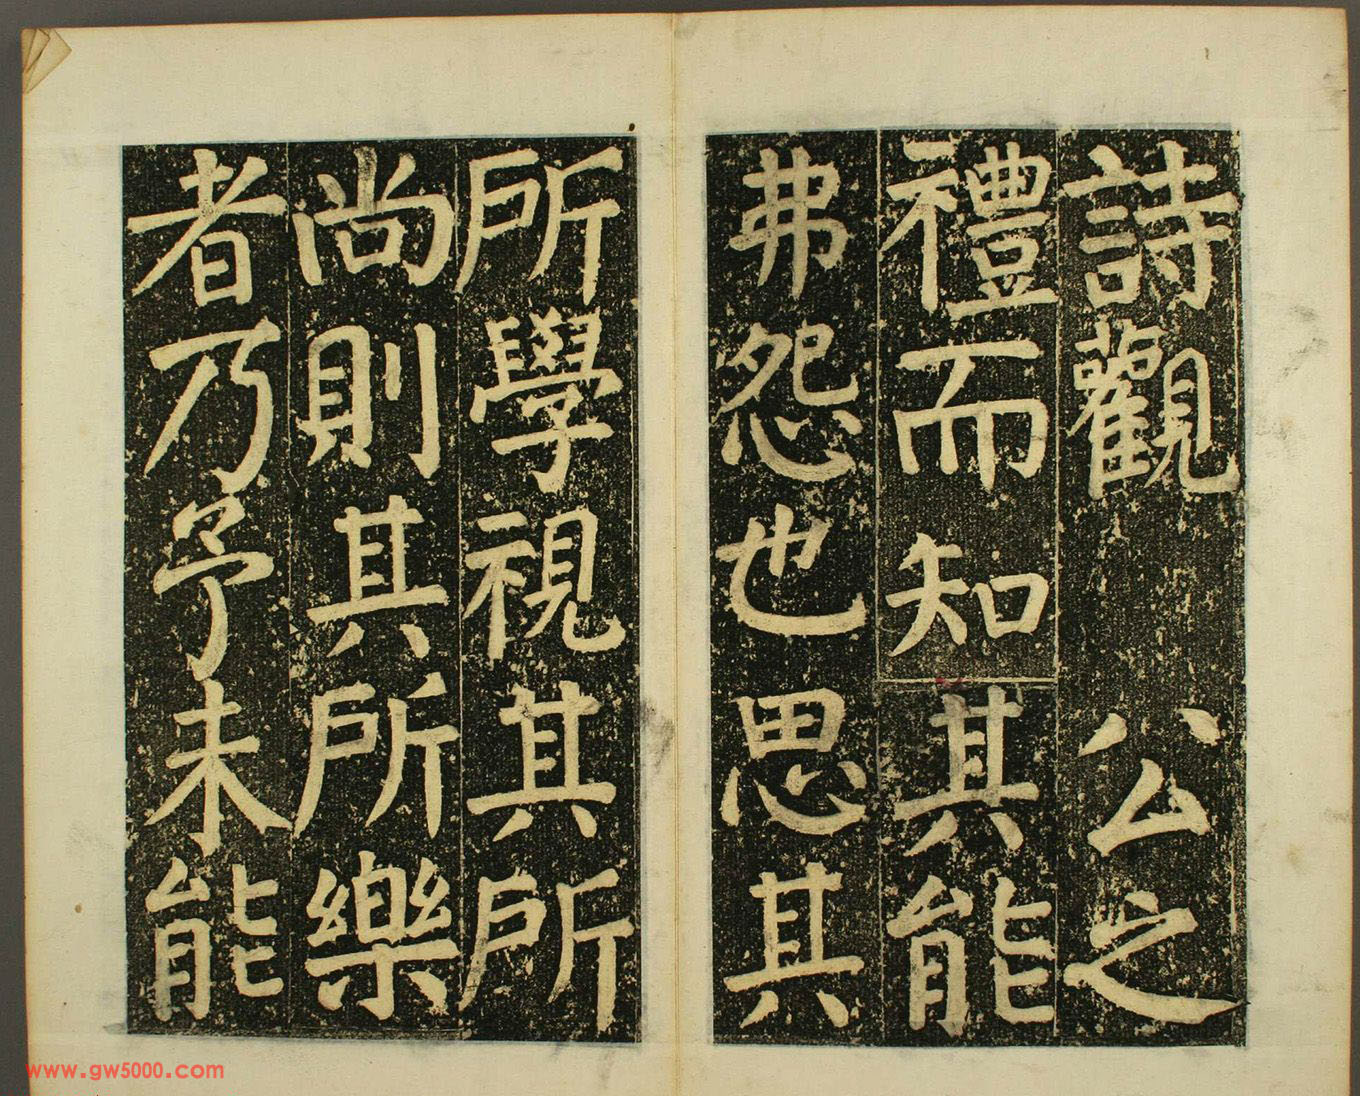 詩觀公之
禮而知其能
弗怨也思其
所學視其所
尚則其所樂
者乃予未能
www.gw5000.com